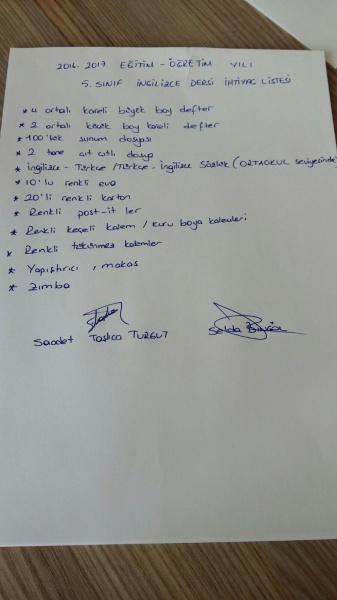 2016-2017 EĞİTİM-ÖĞRETİM YILI
5. SINIF İNGİLİZCE DERSİ İHTİYAÇ LİSTESİ
* 4 ortalı kareli büyük boy defter
* 2 ortalı küçük boy kareli defter
* 100'lük sunum dosyası
* 2 tane çıt çıtlı dosya
* İngilizce - Türkçe / Türkçe - İngilizce Sözlük (ORTAOKUL seviyesinde)
* 10'lu renkli eva
* 20'li renkli karton
* Renkli post-it ler
* Renkli keçeli kalem / kuru boya kalemleri
* Renkli tükenmez kalemler
* Yapıştırıcı, makas
* Zımba
Saadet Taşlıca TURGUT
Selda